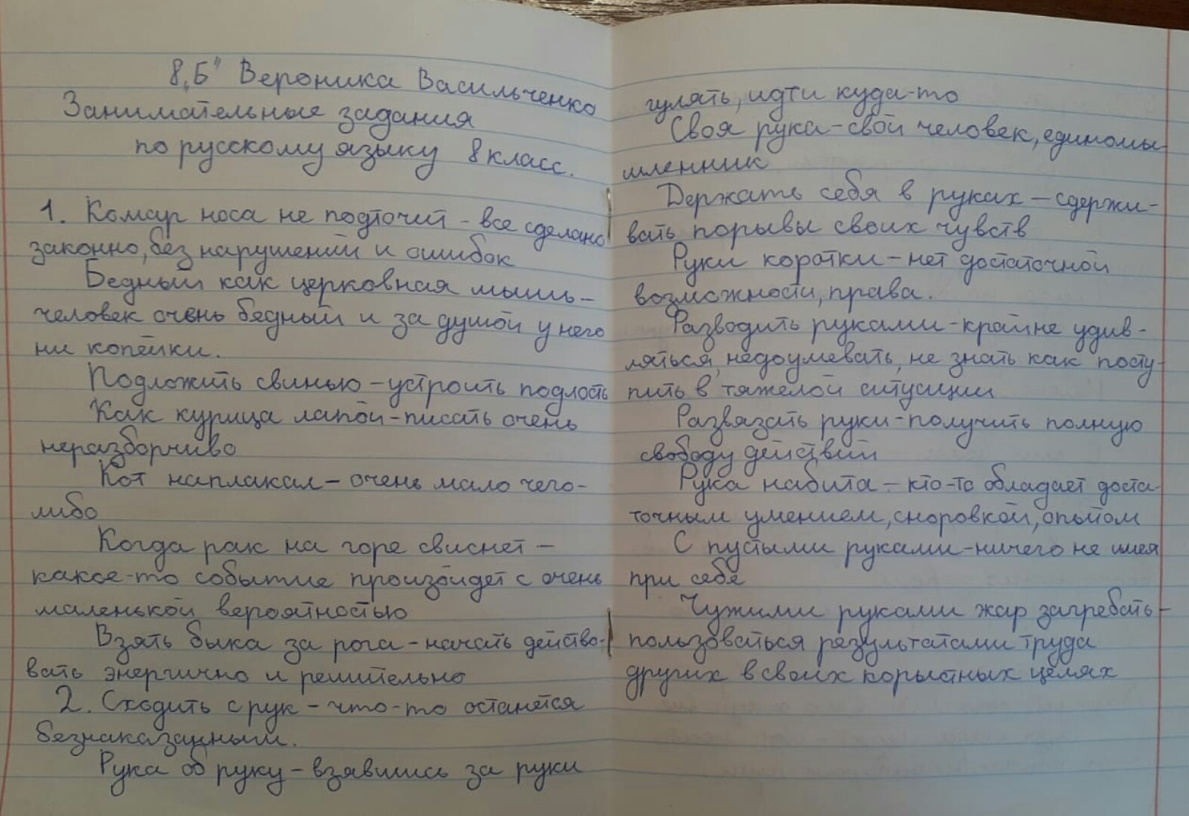 8„Б" Вероника Васильченко
Занимательные задания
по русскому языку 8 класс.
1. Комар носа не подточит - все сделано
законно, без нарушений и ошибок
Бедный как церковная мышь-
человек очень бедный и за душой у него
ни копейки.
Подложить свинью - устроить подлость
Как курица лапой - писать очень
неразборчиво
Кот наплакал - очень мало чего-
либо
Когда рак на горе свиснет -
какое-то событие произойдет с очень
маленькой вероятностью
Взять быка за рога - начать действо-
вать энергично и решительно
2. Сходить с рук - что-то останется
безнаказанным.
Рука об руку - взявшись за руки
гулять, идти куда-то
Своя рука - свой человек, единомы-
шленник
Держать себя в руках - сдержи-
вать порывы своих чувств
Руки коротки - нет достаточной
возможности, права.
Разводить руками - крайне удив-
ляться, недоумевать, не знать как посту-
пить в тяжелой ситуации
Развязать руки - получить полную
свободу действий
Рука набита - кто-то обладает доста-
точным умением, сноровкой, опытом
С пустыми руками - ничего не имея
при себе
Чужими руками жар загребать -
пользоваться результатами труда
других в своих корыстных целях